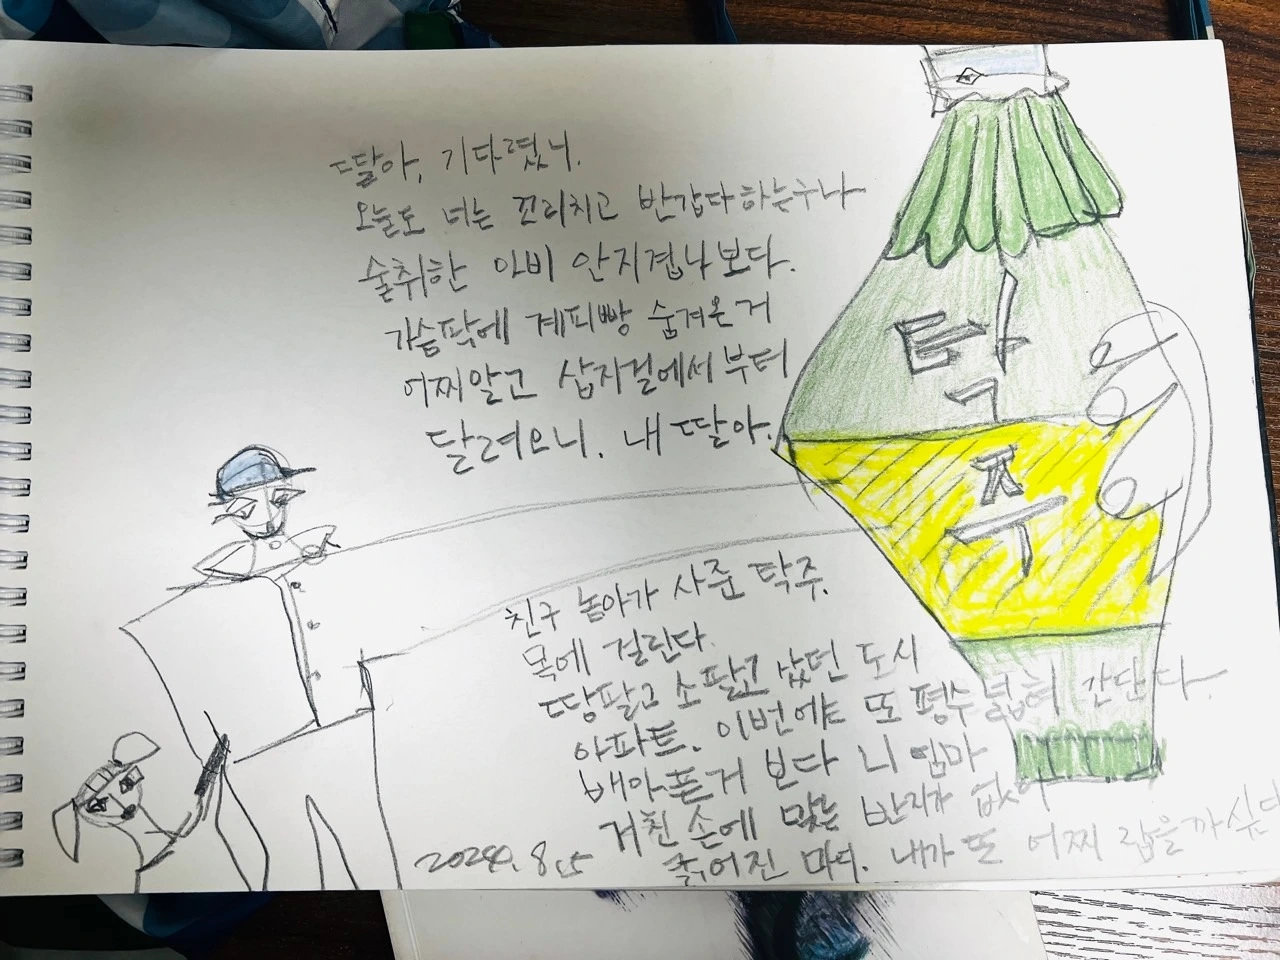 딸아, 기다렸니.
오늘도 너는 꼬리치고 반갑다하는구나
술취한 아비 안지겹나보다.
가슴팍에 계피빵 숨겨온거
어찌알고 삽자걸에서부터
달려오니. 내 딸아.
탁
주
친구 놈아가 사준 탁주.
목에 걸린다.
땅팔고 소팔고 샀던 도시
아파트. 이번에 또 평수넓혀 간단다.
배아픈거 보다 니 엄마
거친손에 맞는 반지가 없어
굵어진 마디. 내가 또 어찌 담을까싶다
2024. 8.5